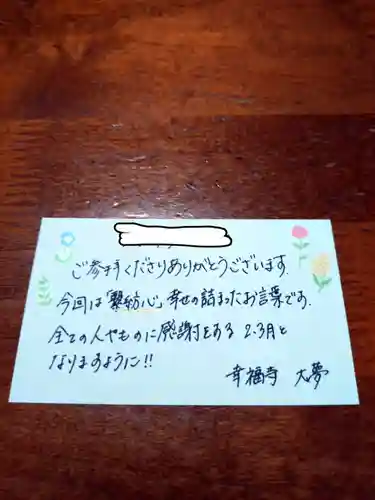 ご参拝くださりありがとうございます.
今回は「繋紡心」幸せの詰まったお言葉です.
全ての人やものに感謝をする 2.3月と
なりますように!!
幸福寺 大夢